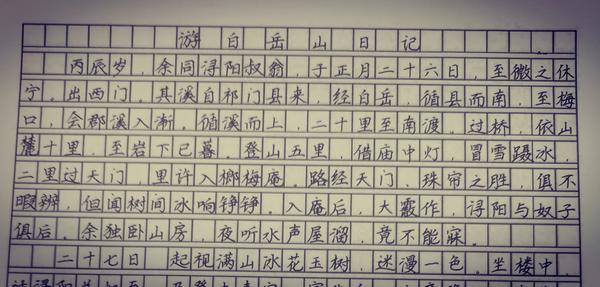 游白岳山日记
丙辰岁，余同浔阳叔翁，于正月二十六日，至徽之休
宁。出西门。其溪自祁门县来，经白岳，循县而南，至梅
口，会郡溪入浙。循溪而上，二十里至南渡。过桥，依山
麓十里，至岩下已暮。登山五里，借庙中灯，冒雪蹑冰，
二里过天门，里许入榔梅庵。路经天门、珠帘之胜，俱不
暇辨，但闻树间冰响铮铮。入庵后，大霰作，浔阳与奴子
俱后。余独卧山房，夜听水声屋溜，竟不能寐。
二十七日 起视满山冰花玉树，迷漫一色。坐楼中，